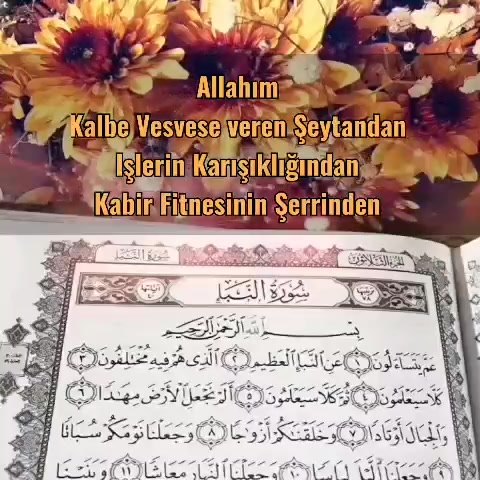 Allahım
Kalbe Vesvese veren Şeytandan
Işlerin Karışıklığından
Kabir Fitnesinin Şerrinden
الجزء الثلاثون سورة النبإ
ترتيبها ٧٨ سُورَةُ النَّبَإِ آياتها ٤٠
بِسْمِ اللَّهِ الرَّحْمَٰنِ الرَّحِيمِ
عَمَّ يَتَسَاءَلُونَ ١ عَنِ النَّبَإِ الْعَظِيمِ ٢ الَّذِي هُمْ فِيهِ مُخْتَلِفُونَ ٣
كَلَّا سَيَعْلَمُونَ ٤ ثُمَّ كَلَّا سَيَعْلَمُونَ ٥ أَلَمْ نَجْعَلِ الْأَرْضَ مِهَادًا ٦
وَالْجِبَالَ أَوْتَادًا ٧ وَخَلَقْنَاكُمْ أَزْوَاجًا ٨ وَجَعَلْنَا نَوْمَكُمْ سُبَاتًا
٩ وَجَعَلْنَا اللَّيْلَ لِبَاسًا ١٠ وَجَعَلْنَا النَّهَارَ مَعَاشًا ١١ وَبَنَيْنَا